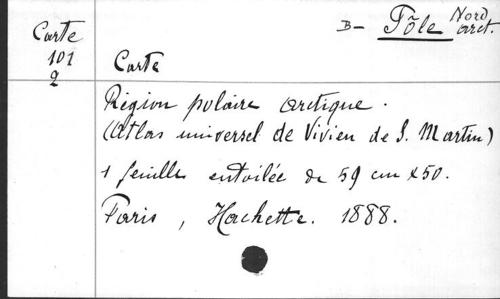 Carte
101
2
B- Pôle Nord
arct.
Carte
Région polaire arctique.
(Atlas universel de Vivien de S. Martin)
1 feuille entoilée de 59 cm x 50.
Paris, Hachette. 1888.